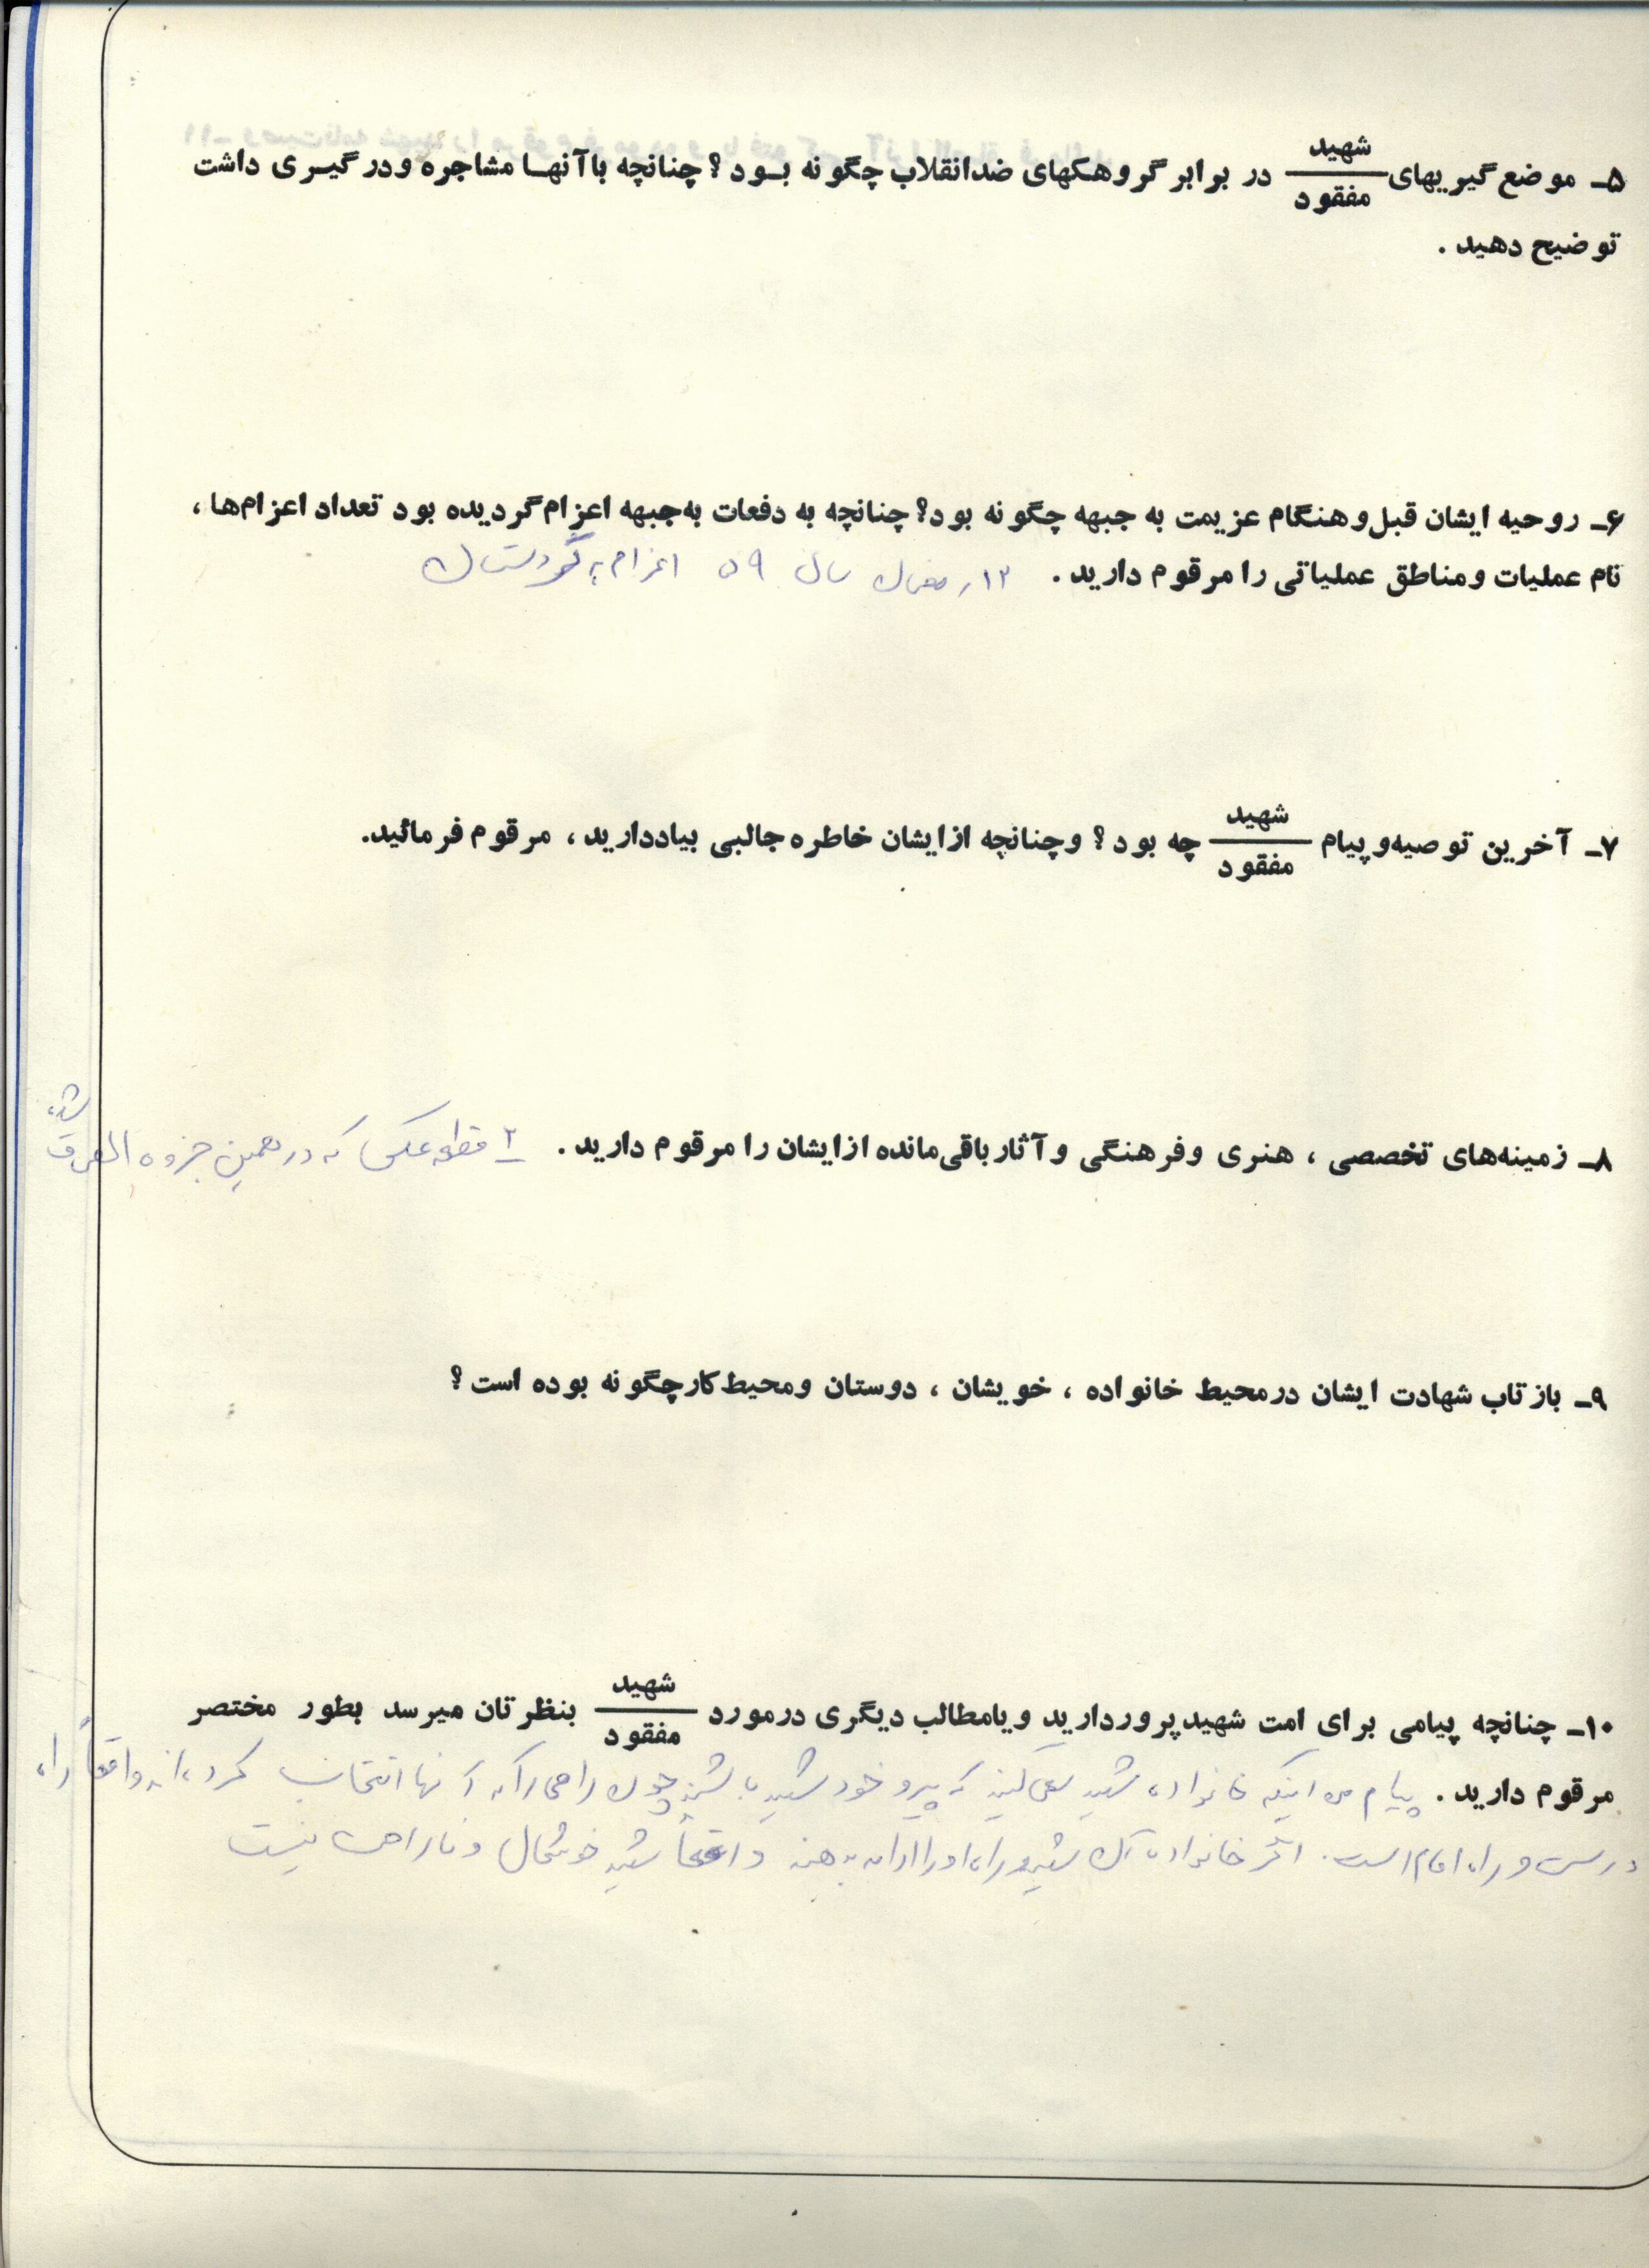 ۵ـ موضع‌گیریهای شهید / مفقود در برابر گروهکهای ضدانقلاب چگونه بـود ؟ چنانچه باآنهـا مشاجره ودرگیـری داشت
توضیح دهید .
۶ـ روحیه ایشان قبل‌وهنگام عزیمت به جبهه چگونه بود؟ چنانچه به دفعات به‌جبهه اعزام‌گردیده بود تعداد اعزام‌ها ،
نام عملیات ومناطق عملیاتی را مرقوم دارید . ۱۲ رمضان سال ۵۹ اعزام به کردستان
۷ـ آخرین توصیه‌وپیام شهید / مفقود چه بود ؟ وچنانچه ازایشان خاطره جالبی بیاددارید ، مرقوم فرمائید.
۸ـ زمینه‌های تخصصی ، هنری وفرهنگی وآثارباقی‌مانده ازایشان را مرقوم دارید . ۲ قطعه عکس که در همین جزوه الصاق شده
۹ـ بازتاب شهادت ایشان درمحیط خانواده ، خویشان ، دوستان ومحیط‌کارچگونه بوده است ؟
۱۰ـ چنانچه پیامی برای امت شهیدپروردارید ویامطالب دیگری درمورد شهید / مفقود بنظرتان میرسد بطور مختصر
مرقوم دارید . پیام من اینکه خانواده شهید سعی کنند که پیرو خود شهید باشند چون راهی را که آنها انتخاب کرده‌اند واقعاً راه
درست و راه امام است. اگر خانواده آن شهید راه او را ادامه بدهند واقعاً شهید خوشحال و ناراحت نیست